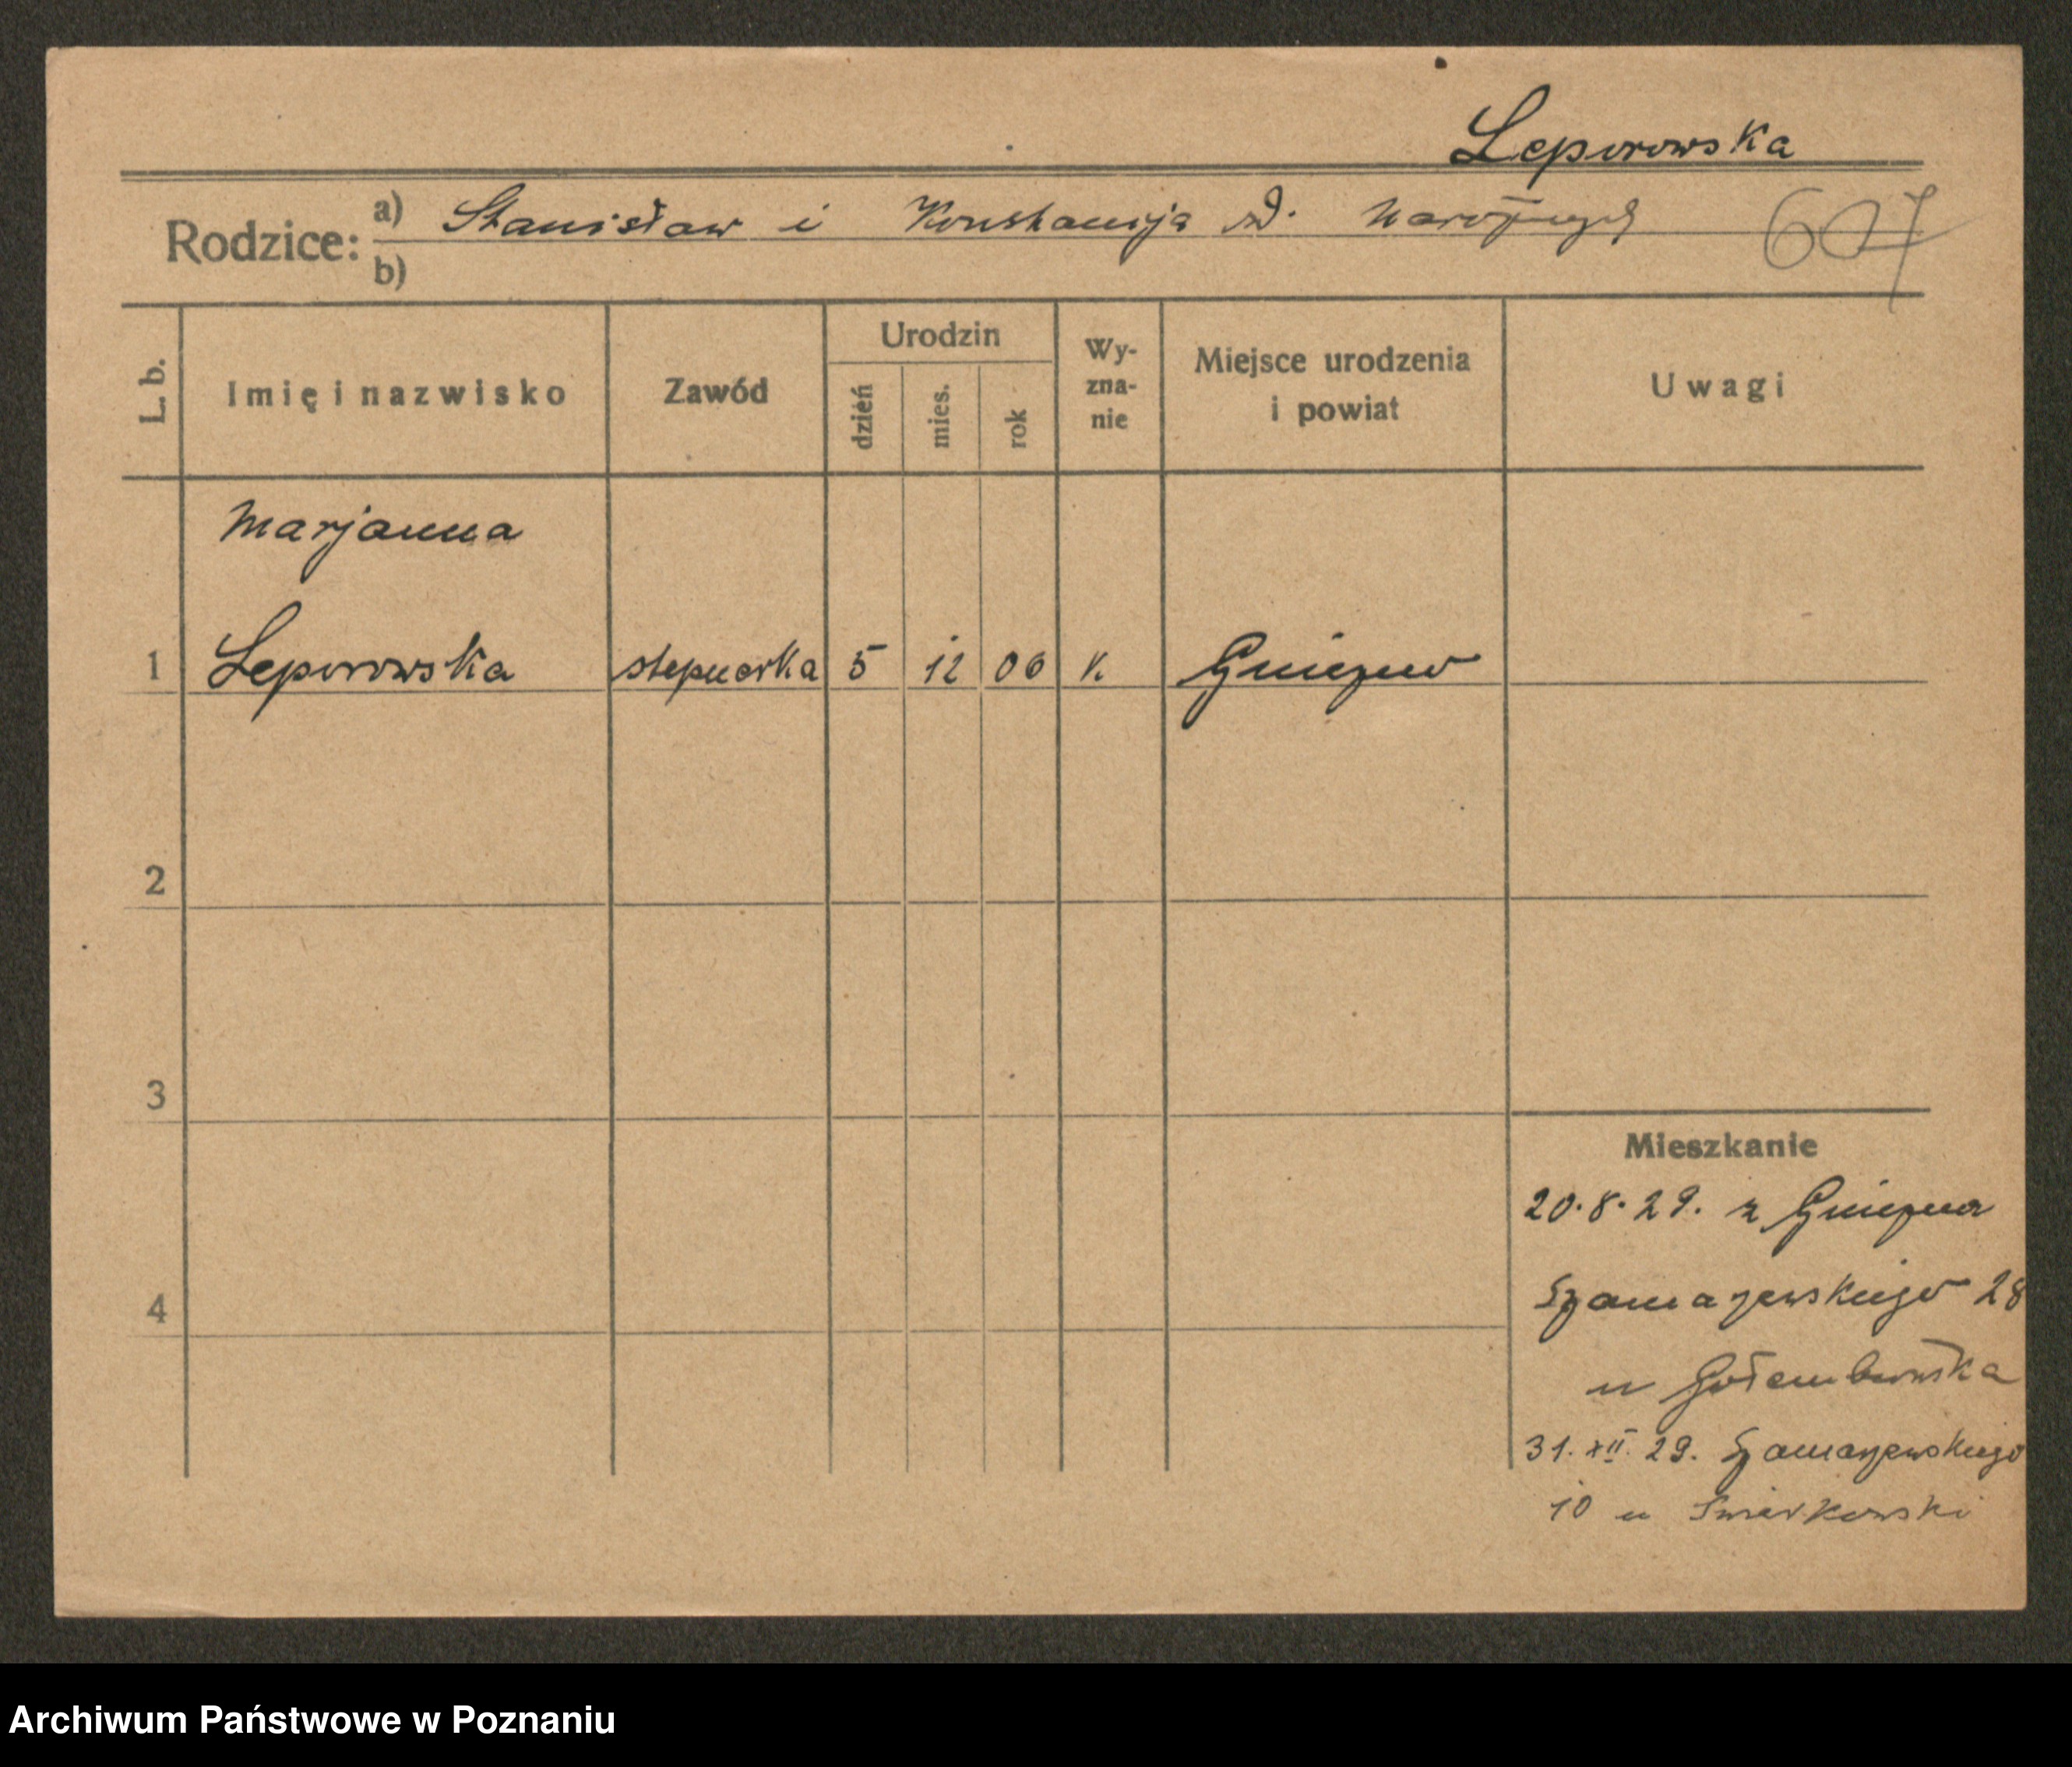 Leporowska
Rodzice: a) Stanisław i Konstancja d. 607
b)
L. b. Imię i nazwisko Zawód Urodzin dzień mies. rok Wy-zna-nie Miejsce urodzenia i powiat Uwagi
Marjanna
1 Leporowska 5 12 06 k. Gniezno
2
3
Mieszkanie
20.8.29. z Gniezna
4 Szamarzewskiego 28
u Gołembowska
31.XII.29. Szamarzewskiego
10 u
Archiwum Państwowe w Poznaniu